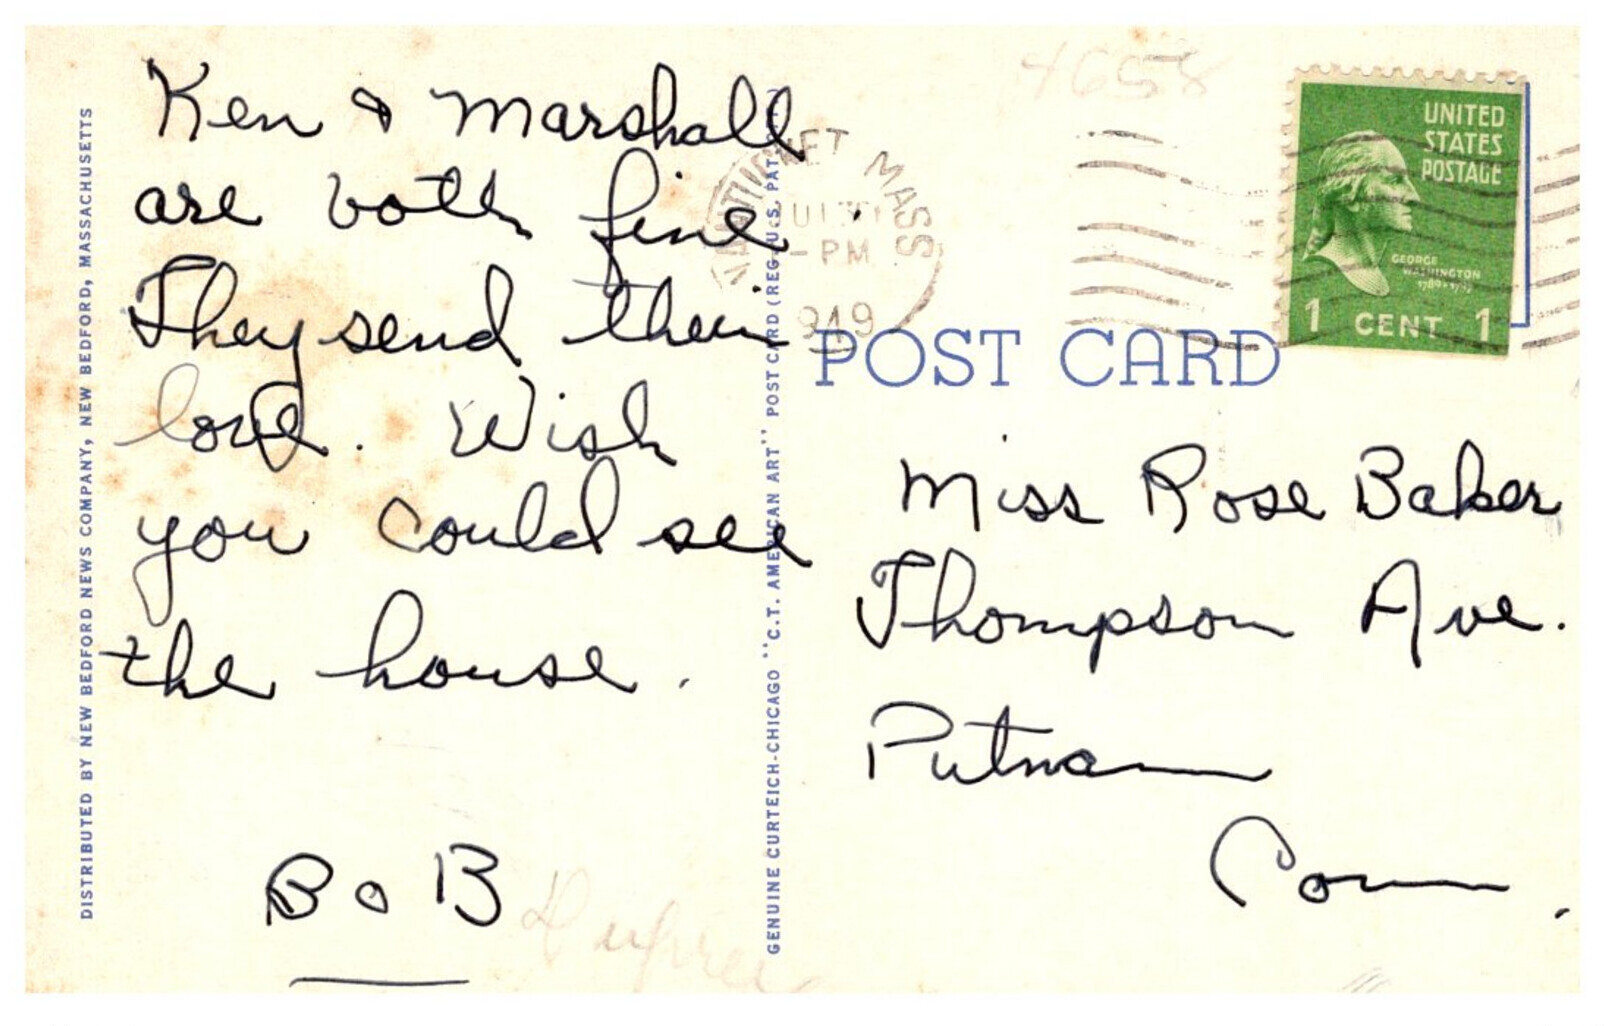 DISTRIBUTED BY NEW BEDFORD NEWS COMPANY, NEW BEDFORD, MASSACHUSETTS
Ken & Marshall
are both fine
They send their
love. Wish
you could see
the house.
BoB
GENUINE CURTEICH-CHICAGO "C.T. AMERICAN ART" POST CARD (REG. U.S. PAT.
4658
NANTUCKET MASS
-PM
1949
UNITED
STATES
POSTAGE
GEORGE
WASHINGTON
1789-1797
1 CENT 1
POST CARD
Miss Rose Baker
Thompson Ave.
Putnam
Conn.